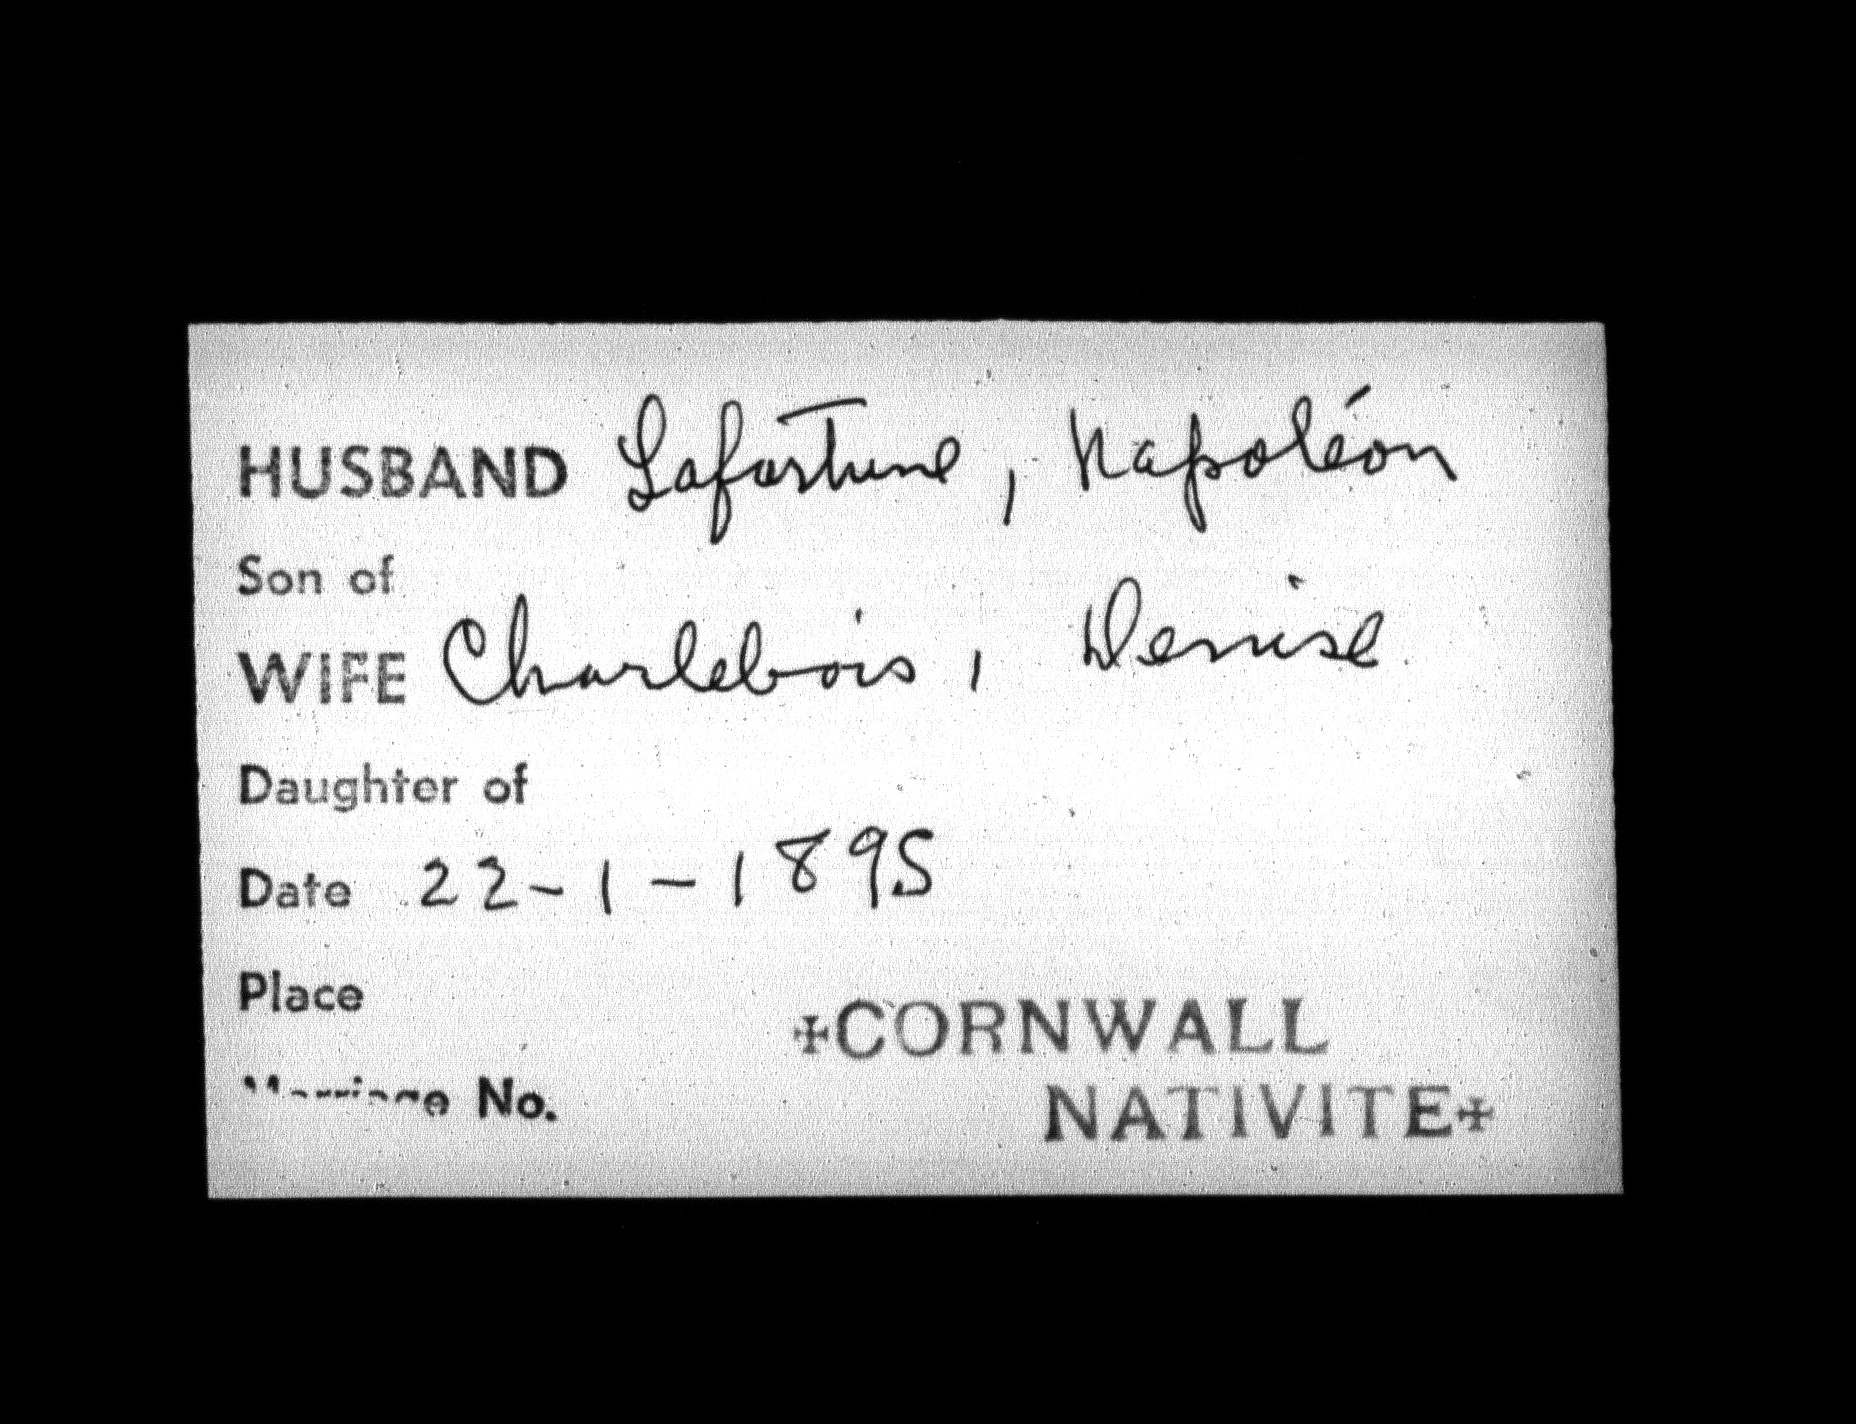 HUSBAND Lafortune, Napoléon
Son of
WIFE Charlebois, Denise
Daughter of
Date 22-1-1895
Place
✠CORNWALL
Marriage No.
NATIVITE✠